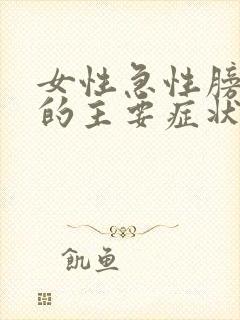 女性急性膀
的主要症状
飢鱼